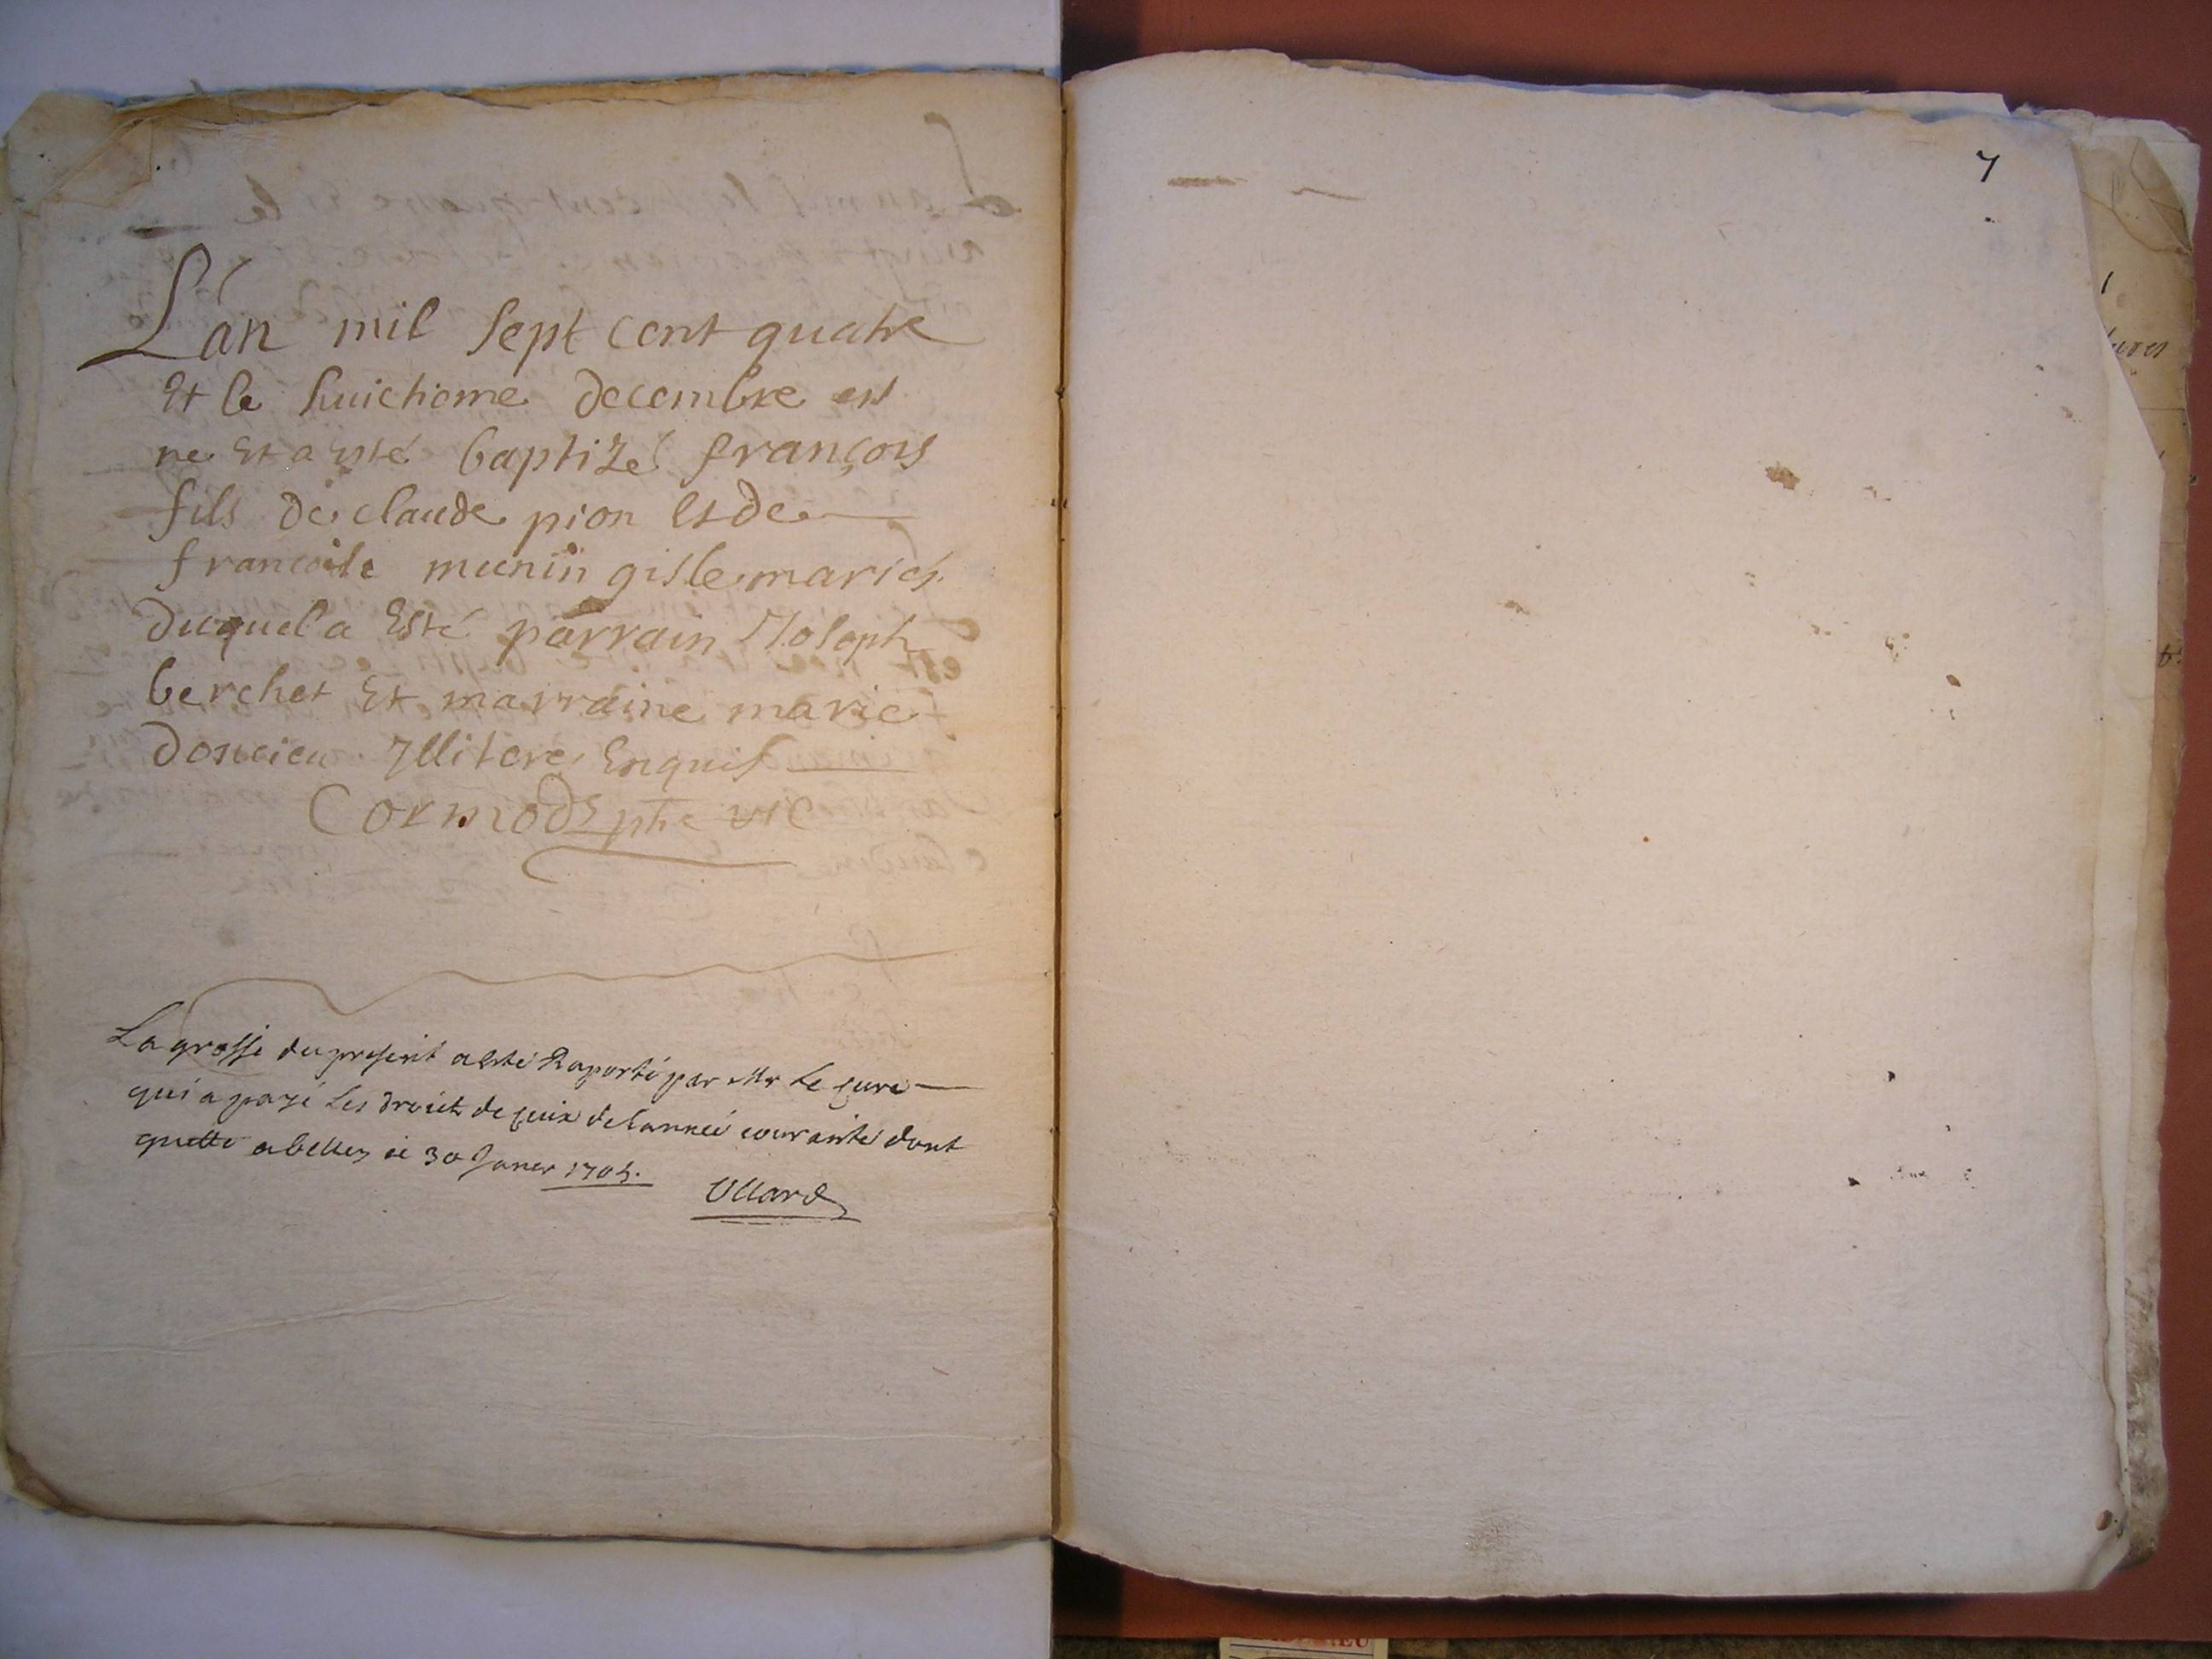 L'an mil sept cent quatre
Et le huictieme decembre est
ne Et a esté baptizé françois
fils de claude pion et de
francoise munin gisle mariés
duquel a Esté parrain Joseph
berchet Et marraine marie
Illitere Enquis
Cormode ptre vic
La grosse du present a esté Raporté par Mr Le curé
qui a payé Les droict de ceux de l'année courante dont
quitte a belley ce 30 Janer 1705.
Ullard
7